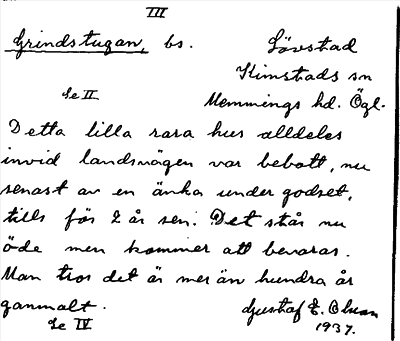 III
Grindstugan, bs. Lövstad
Kimstads sn
Se II Memmings hd. Ögl.
Detta lilla rara hus alldeles
invid landsvägen var bebott, nu
senast av en änka under godset,
tills för 2 år sen. Det står nu
öde men kommer att bevaras.
Man tros det är mer än hundra år
gammalt. Gustaf E. Olsson
Se IV 1937.